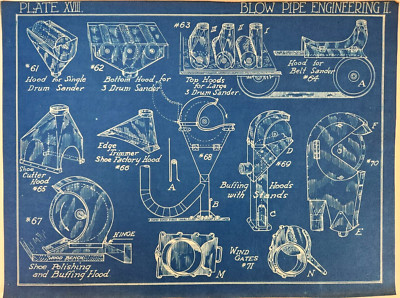 PLATE XVIII.
BLOW PIPE ENGINEERING II.
#61
Hood for Single
Drum Sander
#62
Bottom Hood for
3 Drum Sander
#63
I
Top Hoods
for Large
3 Drum Sander
Hood for
Belt Sander
#64
A
Shoe
Cutter
Hood
#65
Edge
Trimmer
Shoe Factory Hood
#66
A
#68
B
D
#69
Buffing Hoods
with Stands
C
F
#70
E
#67
HINGE
WOOD BENCH
Shoe Polishing
and Buffing Hood
M
WIND
GATES
#71
N